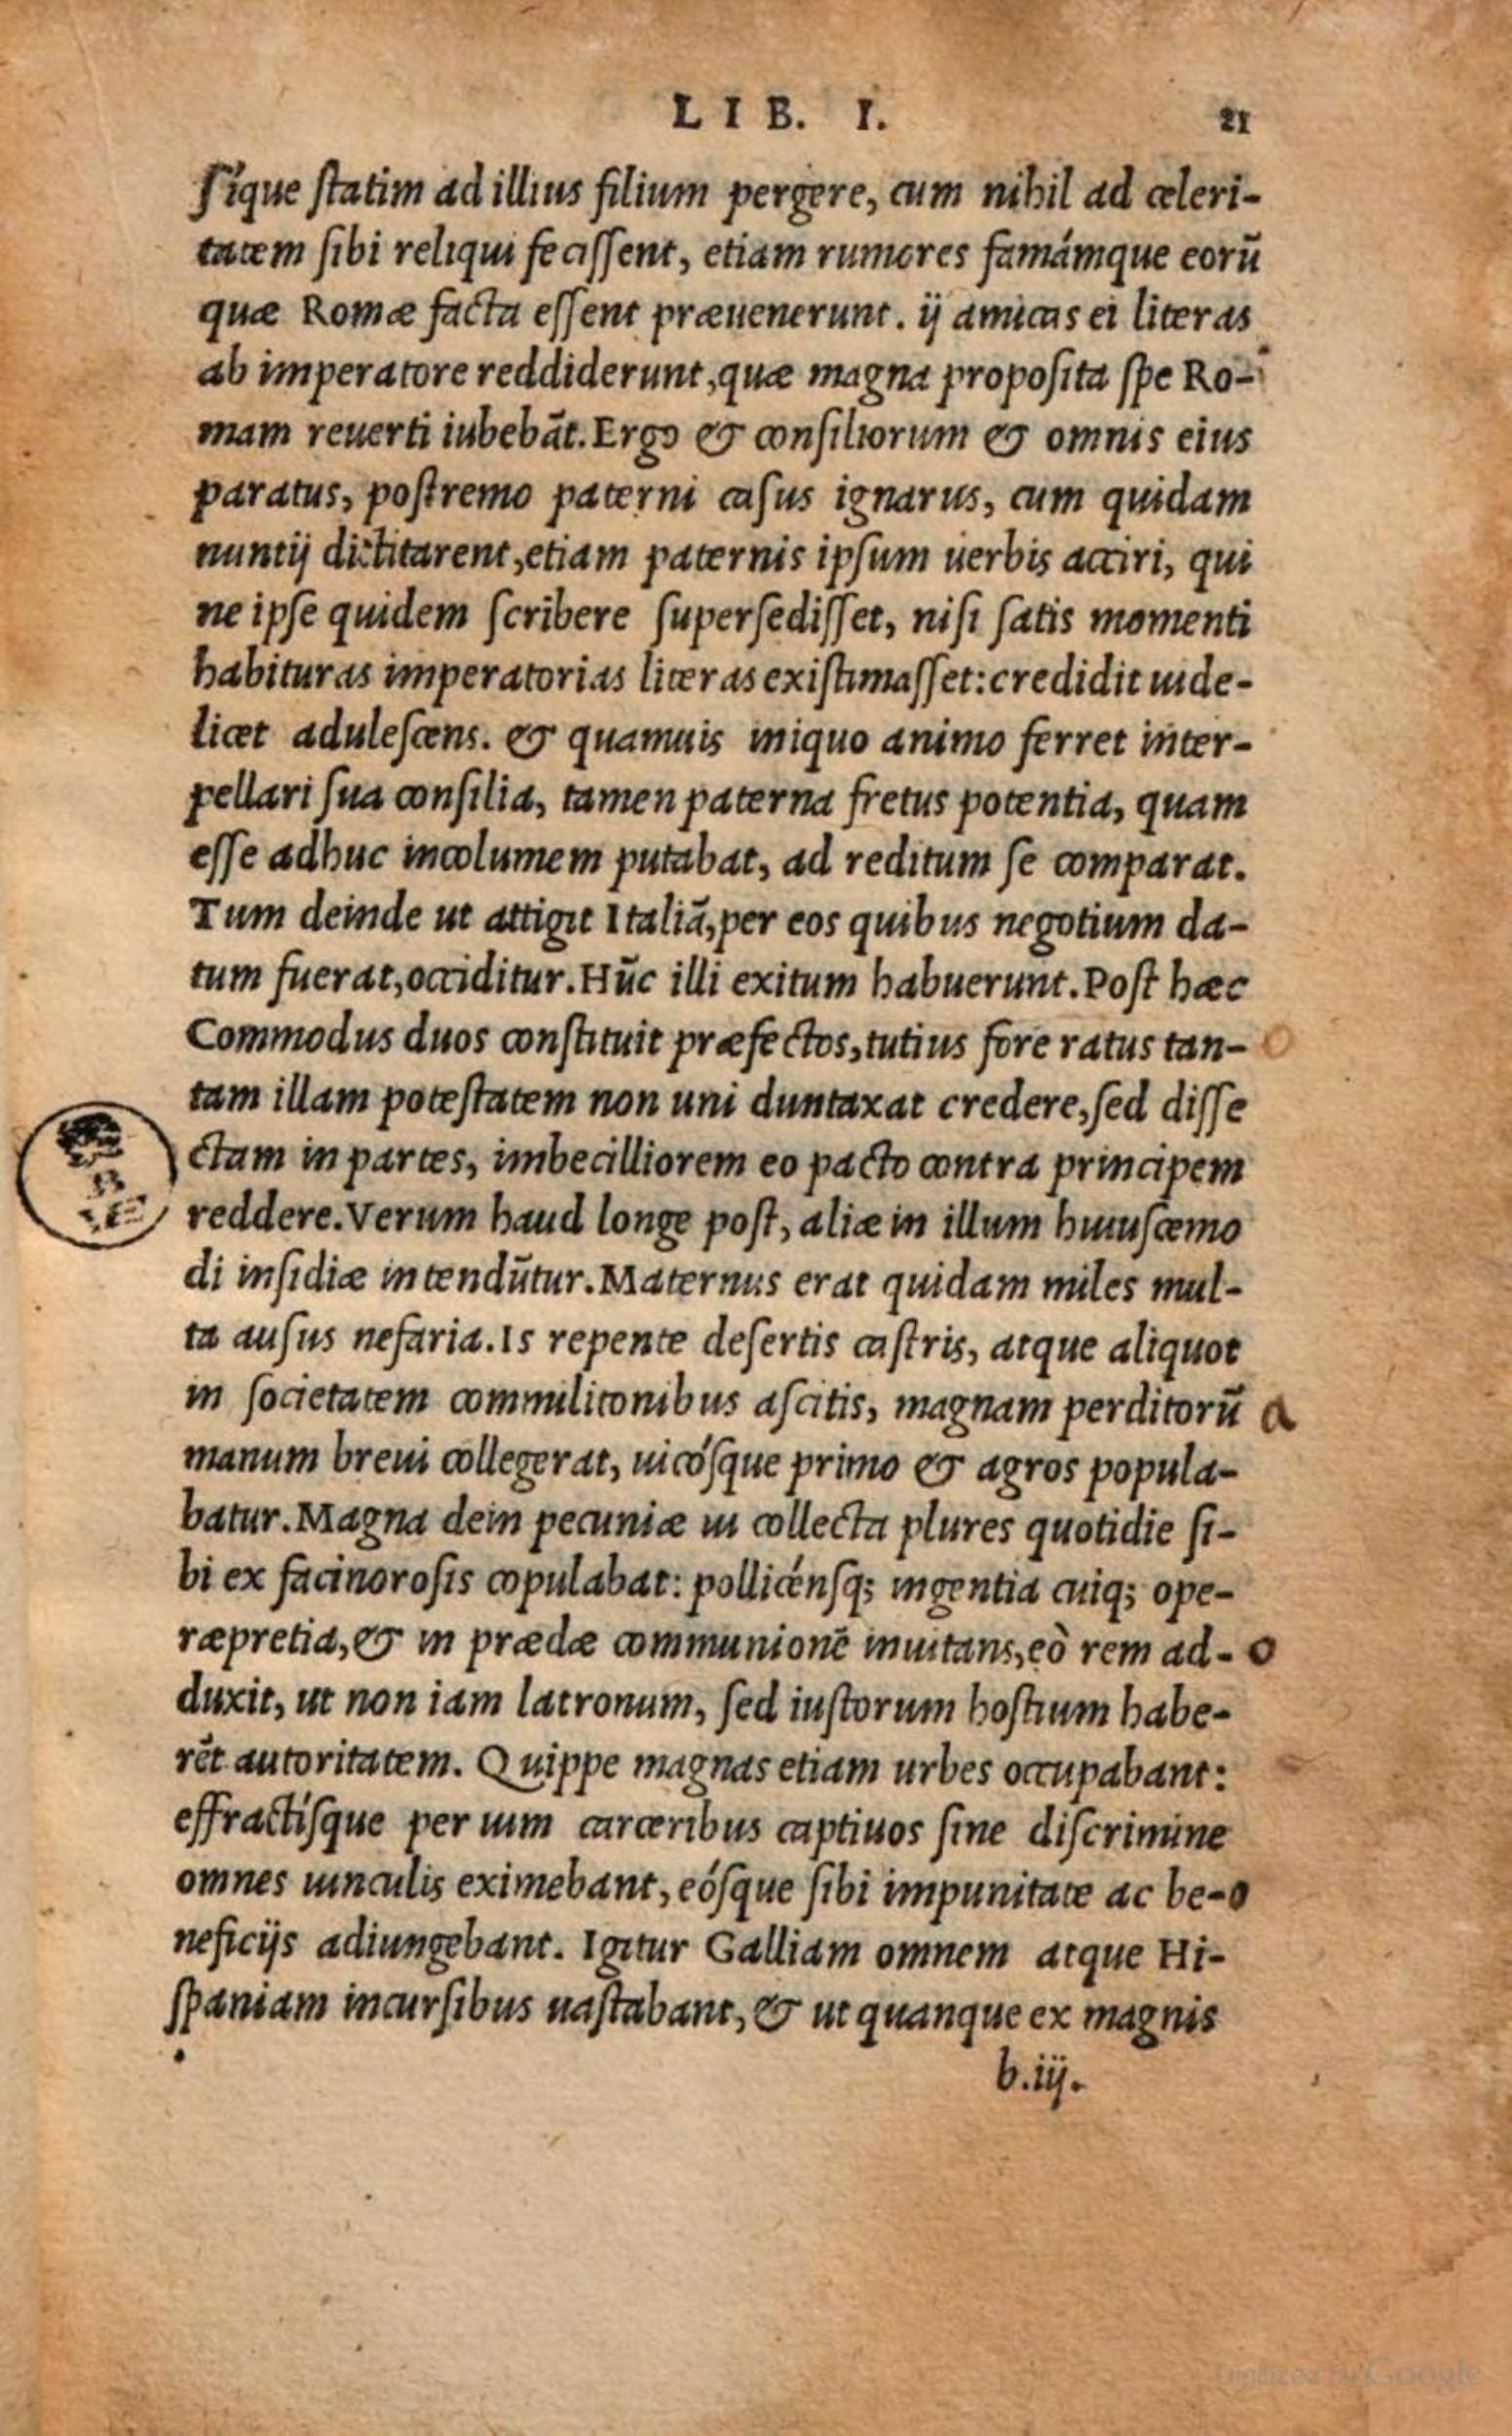 LIB. I. 21
ſique ſtatim ad illius filium pergere, cum nihil ad celeri-
tatem ſibi reliqui feciſſent, etiam rumores famámque eorū
quæ Romæ facta eſſent præuenerunt. ij amicas ei literas
ab imperatore reddiderunt, quæ magna propoſita ſpe Ro-
mam reuerti iubebāt. Ergo & conſiliorum & omnis eius
paratus, poſtremo paterni caſus ignarus, cum quidam
nuntij dictitarent, etiam paternis ipſum uerbis acciri, qui
ne ipſe quidem ſcribere ſuperſediſſet, niſi ſatis momenti
habituras imperatorias literas exiſtimaſſet: credidit uide-
licet aduleſcens. & quamuis iniquo animo ferret inter-
pellari ſua conſilia, tamen paterna fretus potentia, quam
eſſe adhuc incolumem putabat, ad reditum ſe comparat.
Tum deinde ut attigit Italiā, per eos quibus negotium da-
tum fuerat, occiditur. Hūc illi exitum habuerunt. Poſt hæc
Commodus duos conſtituit præfectos, tutius fore ratus tan-
tam illam poteſtatem non uni duntaxat credere, ſed diſſe
ctam in partes, imbecilliorem eo pacto contra principem
reddere. Verum haud longe poſt, aliæ in illum huiuſcemo
di inſidiæ intendūtur. Maternus erat quidam miles mul-
ta auſus nefaria. Is repente deſertis caſtris, atque aliquot
in ſocietatem commilitonibus aſcitis, magnam perditorū a
manum breui collegerat, uicóſque primo & agros popula-
batur. Magna dein pecuniæ ui collecta plures quotidie ſi-
bi ex facinoroſis copulabat: pollicénſq; ingentia cuiq; ope-
ræpretia, & in prædæ communionē inuitans, eò rem ad- o
duxit, ut non iam latronum, ſed iuſtorum hoſtium habe-
rēt autoritatem. Quippe magnas etiam urbes occupabant:
effractíſque per uim carceribus captiuos ſine diſcrimine
omnes uinculis eximebant, eóſque ſibi impunitate ac be- o
neficijs adiungebant. Igitur Galliam omnem atque Hi-
ſpaniam incurſibus uaſtabant, & ut quanque ex magnis
b.iij.
Digitized by Google